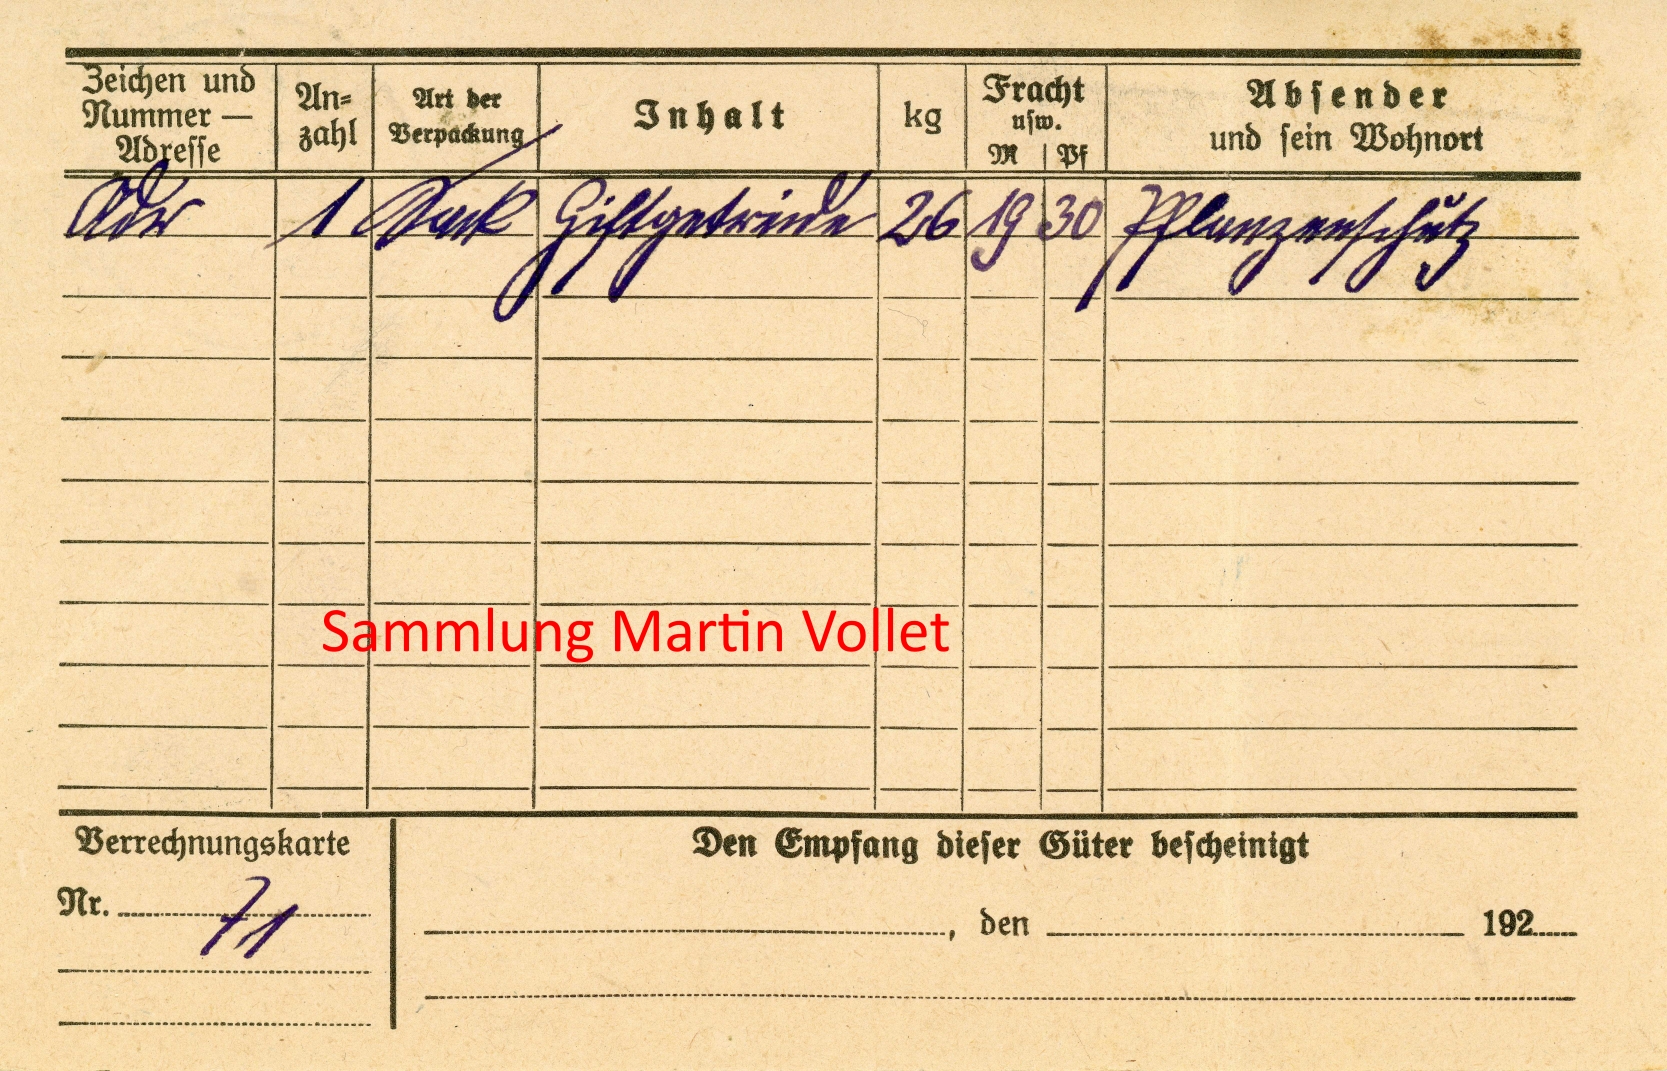 Zeichen und Nummer — Adresse
An= zahl
Art der Verpackung
Inhalt
kg
Fracht usw. M | Pf
Absender und sein Wohnort
Adr 1 Sack Giftgetreide 26 19 30 Pflanzenschutz
Sammlung Martin Vollet
Verrechnungskarte
Nr. 71
Den Empfang dieser Güter bescheinigt
, den 192